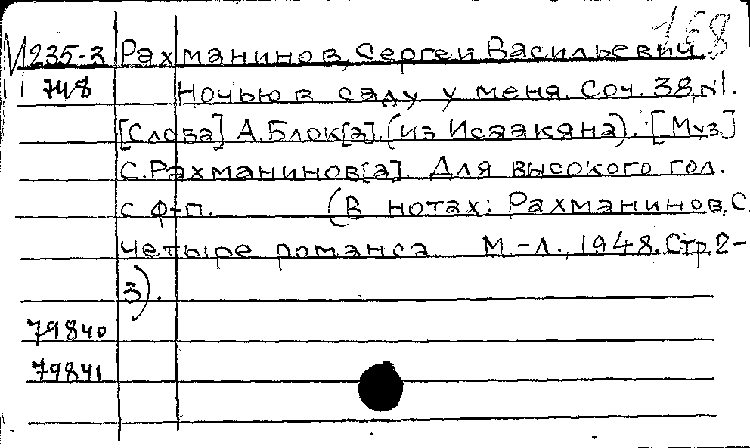 168
И235-3 Рахманинов, Сергей Васильевич.
748 Ночью в саду у меня. Соч. 38, №1.
[Слова] А. Блок[а]. (из Исаакяна). [Муз.]
С. Рахманинов[а]. Для высокого гол.
с ф-п. (В нотах: Рахманинов, С.
Четыре романса М.-Л., 1948. Стр. 2-
3).
79840
79841